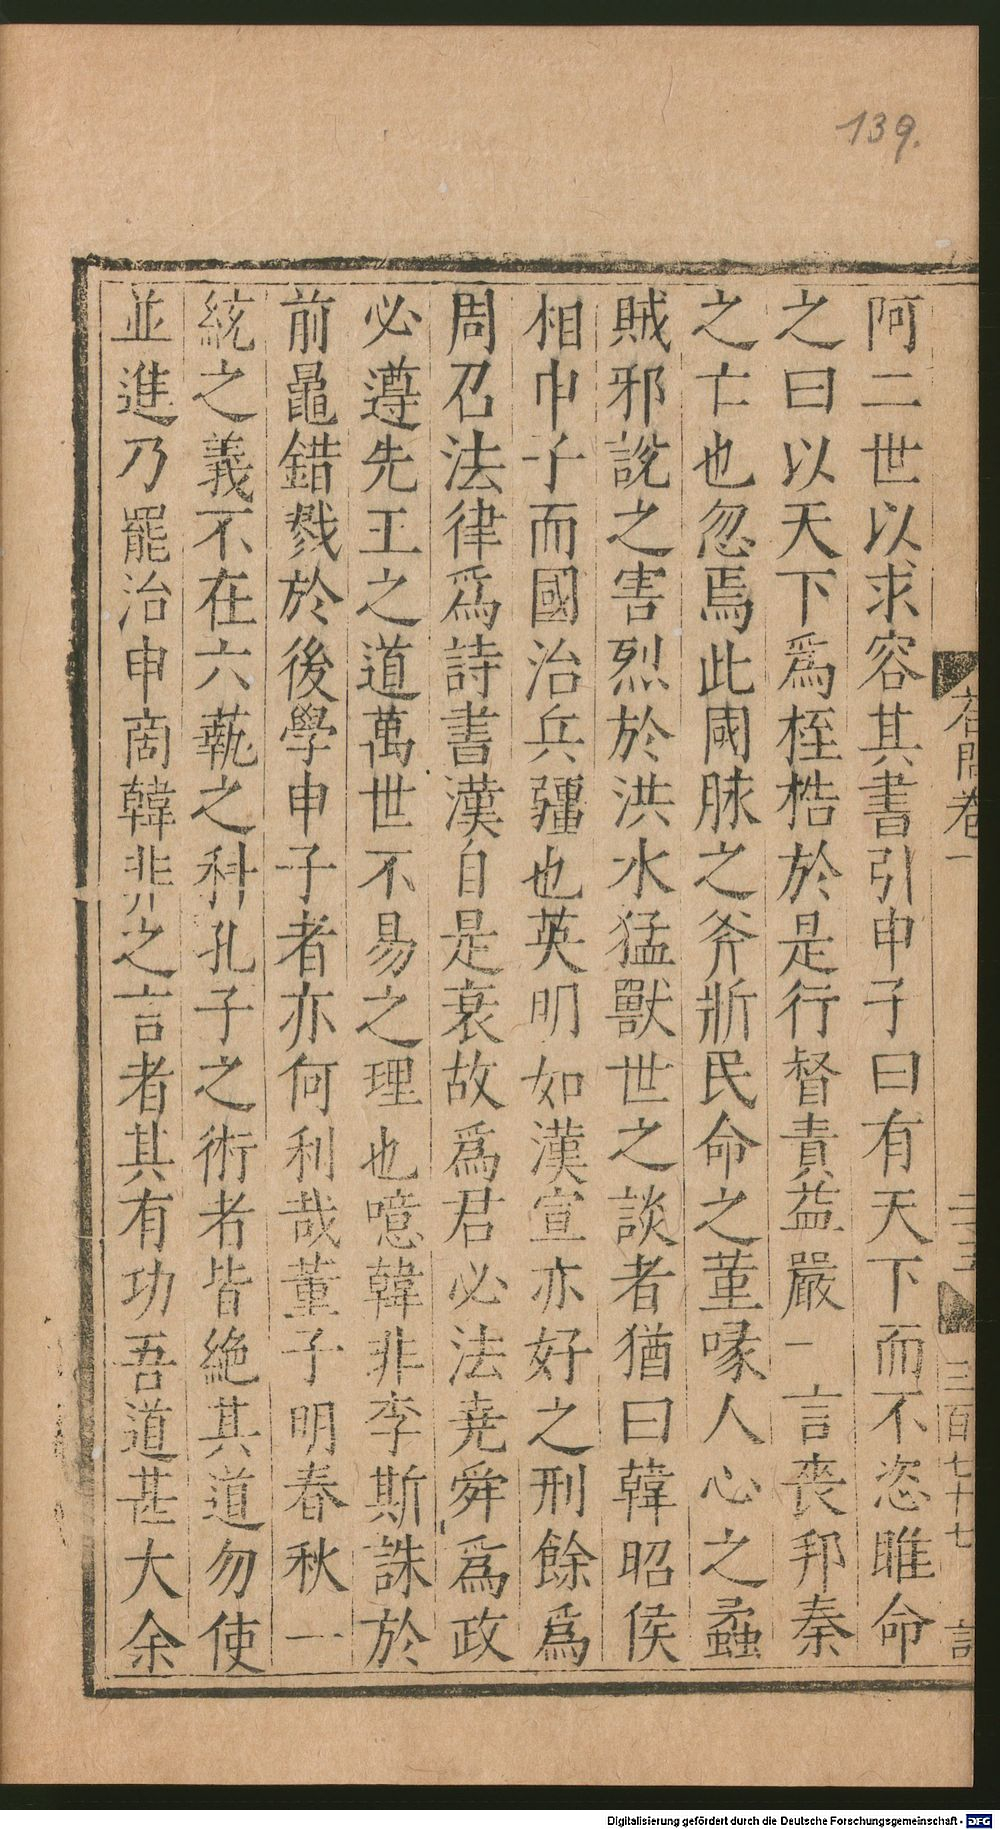 139.
阿二世以求容其書引申子曰有天下而不恣睢命
之曰以天下爲桎梏於是行督責益嚴一言喪邦秦
之亡也忽焉此國脉之斧斨民命之堇喙人心之蟊
賊邪說之害烈於洪水猛獸世之談者猶曰韓昭侯
相申子而國治兵疆也英明如漢宣亦好之刑餘爲
周召法律爲詩書漢自是衰故爲君必法堯舜爲政
必遵先王之道萬世不易之理也噫韓非李斯誅於
前鼂錯戮於後學申子者亦何利哉董子明春秋一
統之義不在六蓺之科孔子之術者皆絶其道勿使
並進乃罷治申商韓非之言者其有功吾道甚大余
卷一
三百七十七
Digitalisierung gefördert durch die Deutsche Forschungsgemeinschaft - DFG